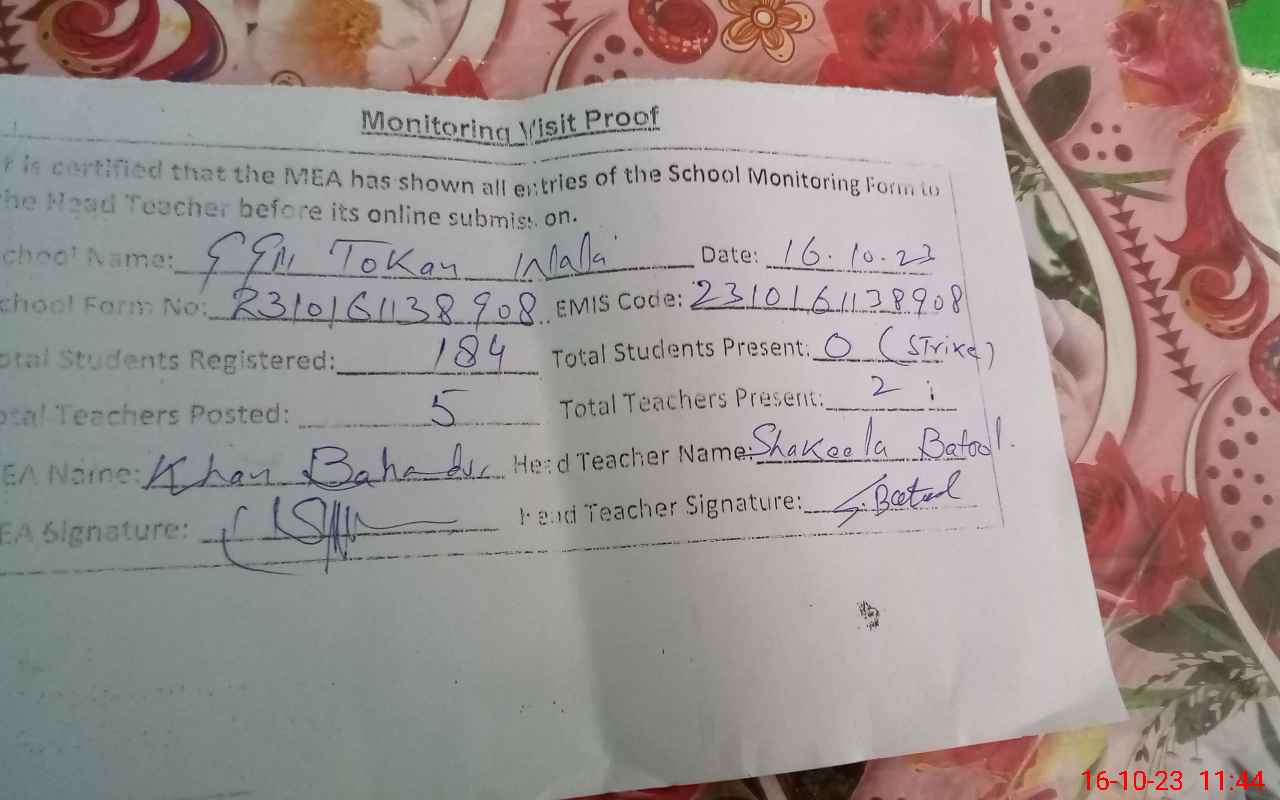 Monitoring Visit Proof
is certified that the MEA has shown all entries of the School Monitoring Form to
he Head Teacher before its online submission.
chool Name: GGM Tokan Wala Date: 16.10.23
chool Form No: 2310161138908 EMIS Code: 2310161138908
otal Students Registered: 184 Total Students Present: 0 (Strike)
otal Teachers Posted: 5 Total Teachers Present: 2
EA Name: Khan Bahadur Head Teacher Name: Shakeela Batool.
EA Signature: Head Teacher Signature: S.Batool
16-10-23 11:44